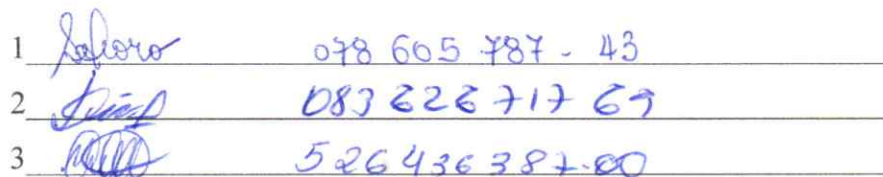 1 078 605 787 - 43
2 083 626 717 69
3 526 436 387.00